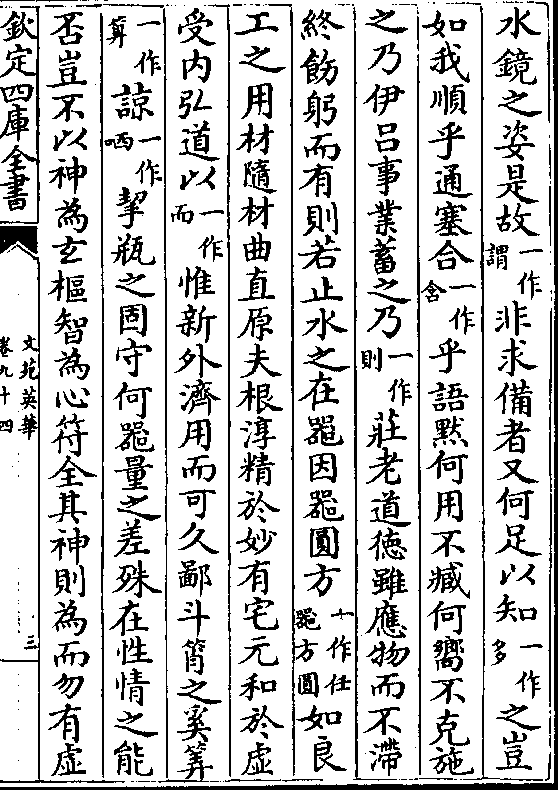 水鏡之姿是故一作謂非求備者又何足以知一作多之豈
如我順乎通塞合一作含乎語默何用不臧何嚮不克施
之乃伊呂事業蓄之乃一作則莊老道德雖應物而不滯
終飭躬而有則若止水之在器因器圓方一作任器方圓如良
工之用材隨材曲直原夫根淳精於妙有宅元和於虛
受内弘道以一作而惟新外濟用而可久鄙斗筲之奚筭
一作算諒一作哂挈瓶之固守何器量之差殊在性情之能
否豈不以神為玄樞智為心符全其神則為而勿有虛
欽定四庫全書
文苑英華
卷九十四
三